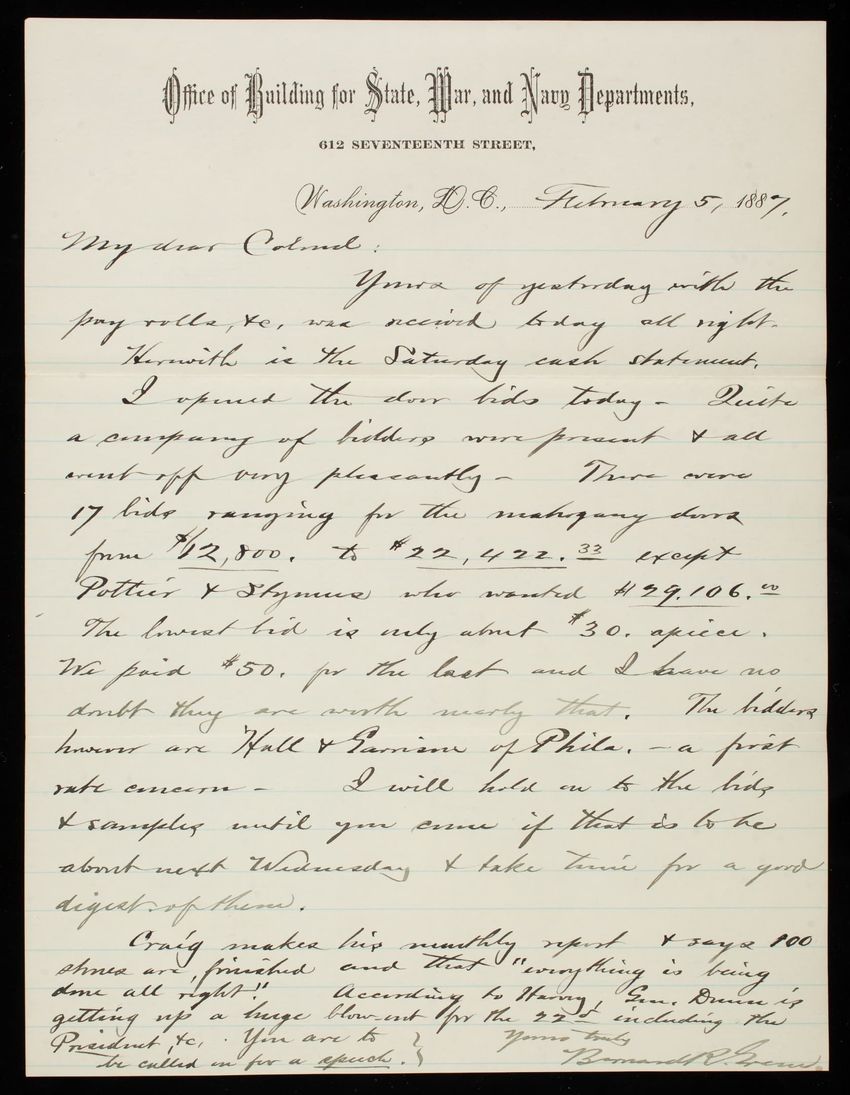 Office of Building for State, War, and Navy Departments,
612 SEVENTEENTH STREET,
Washington, D.C., February 5, 1887.
My dear Colonel:
Yours of yesterday with the
pay rolls, &c, was received today all right.
Herewith is the Saturday cash statement.
I opened the door bids today - Quite
a company of bidders were present & all
went off very pleasantly - There were
17 bids ranging for the mahogany doors
from $12,800. to $22,422.33 except
Pottier & Stymus who wanted $29,106.00
The lowest bid is only about $30. apiece.
We paid $50. for the last and I have no
doubt they are worth nearly that. The bidders
however are Hall & Garrison of Phila. - a first
rate concern - I will hold on to the bids
& samples until you come if that is to be
about next Wednesday & take time for a good
digest of them.
Craig makes his monthly report & says 100
stones are finished and that "everything is being
done all right." According to Harvey, Gen. Dunn is
getting up a huge blow-out for the 22d including the
President, &c. You are to
be called on for a speech.
Yours truly
Bernard R. Green.